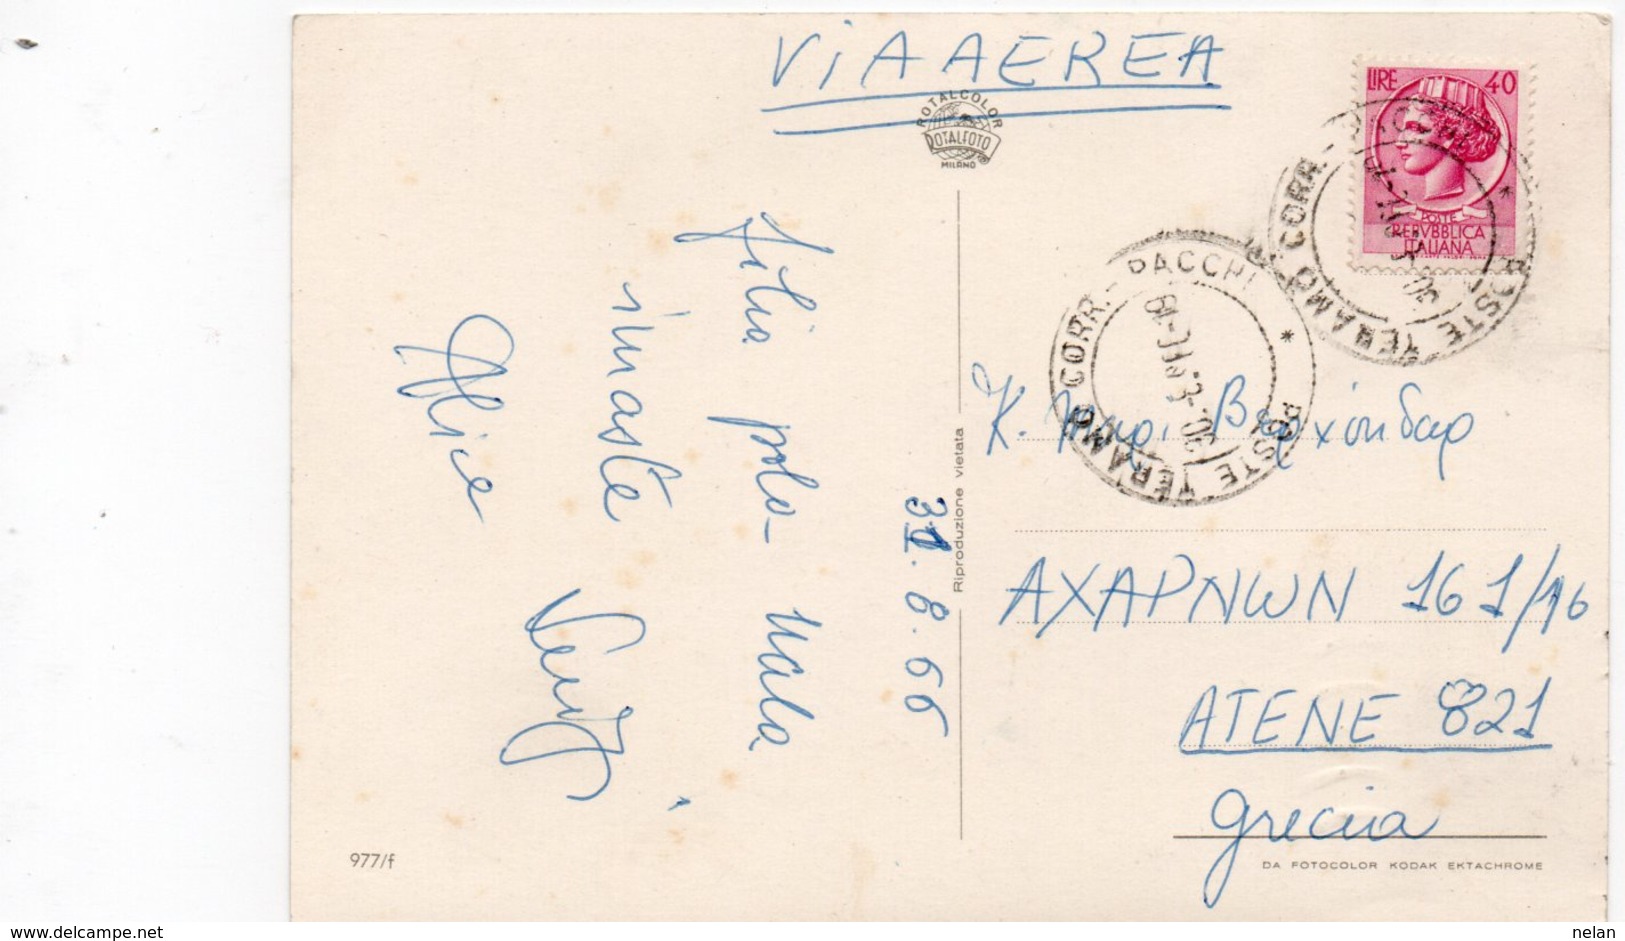 VIA AEREA
ROTALCOLOR
ROTALFOTO
MILANO
LIRE 40
POSTE
REPVBBLICA
ITALIANA
POSTE TERAMO CORR. - PACCHI
POSTE TERAMO CORR. - PACCHI
filia polo - nala
imaste
Alice
31.8.66
Riproduzione vietata
Κ.
ΑΧΑΡΝΩΝ 161/
ATENE 821
Grecia
977/f
DA FOTOCOLOR KODAK EKTACHROME
www.delcampe.net
nelan